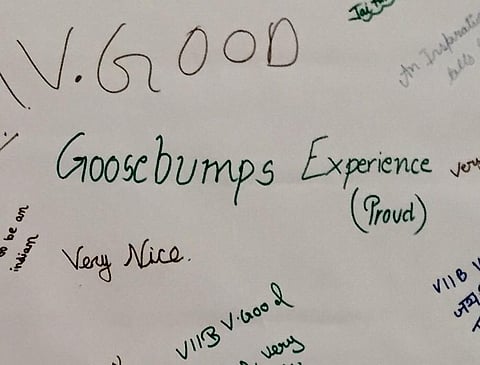 V. GOOD
An
Goosebumps Experience
(Proud)
very
to be an
indian
Very Nice.
VIIB V. Good
very
VIIB